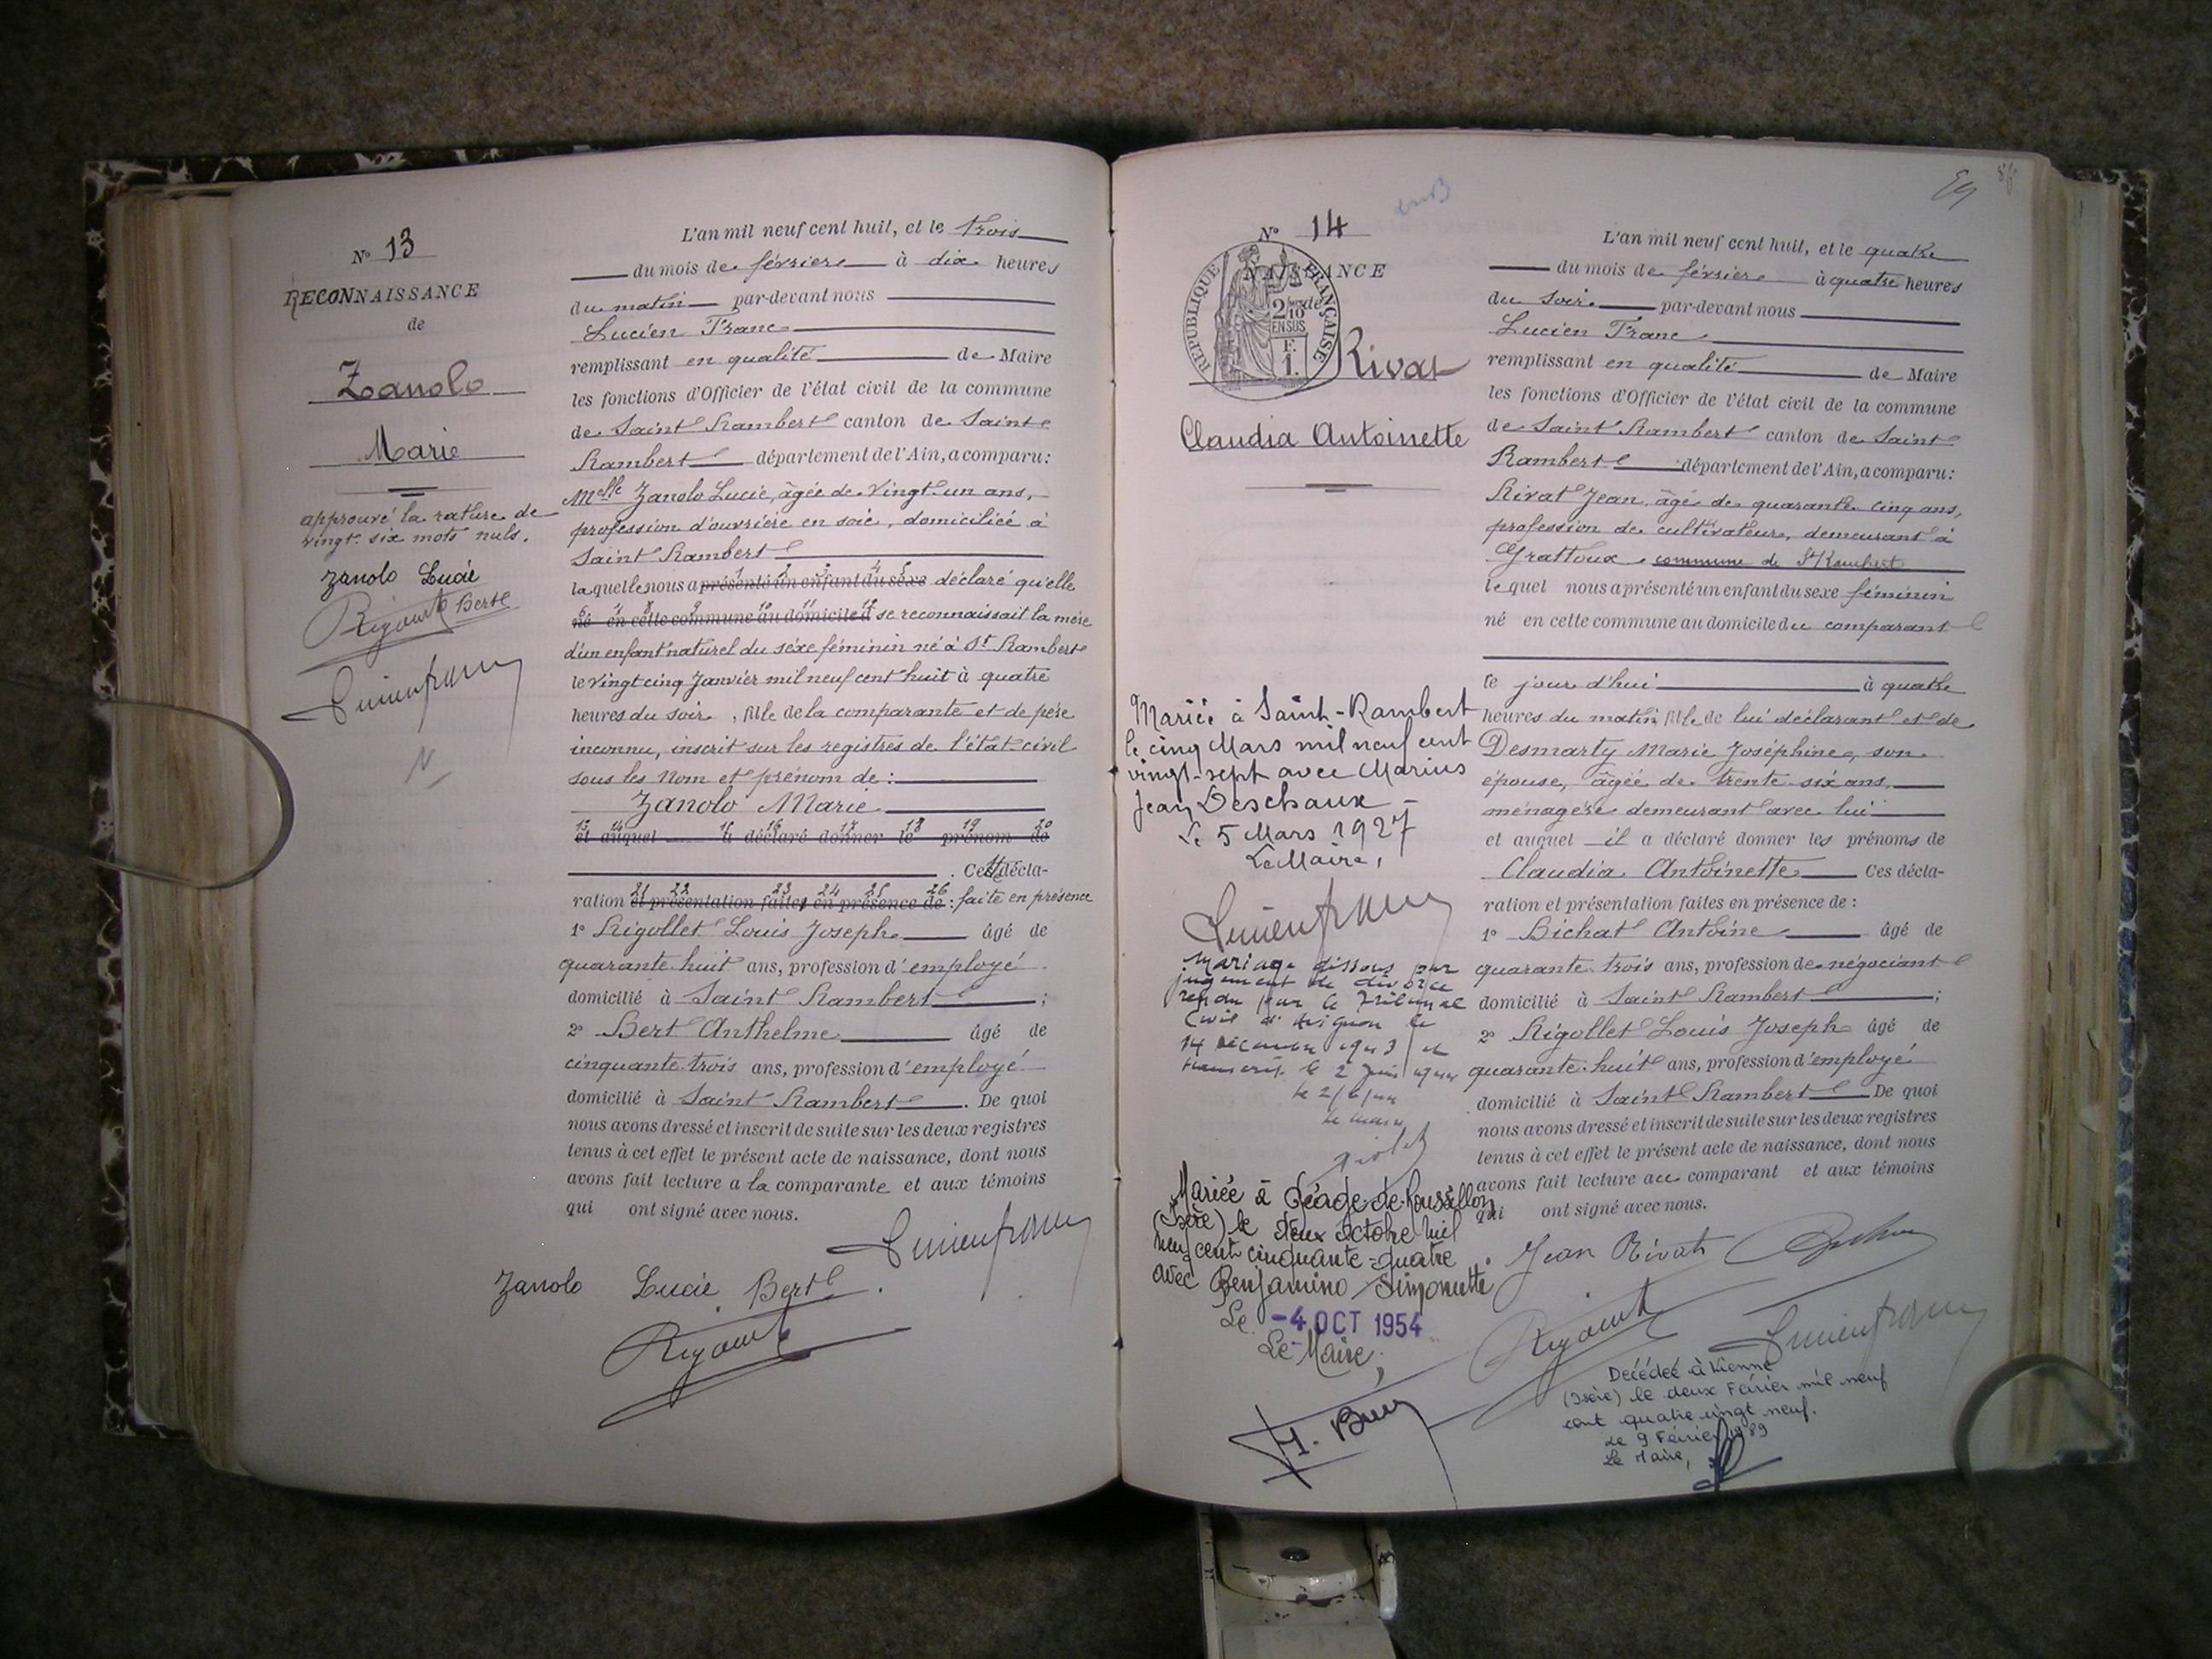 N° 13
RECONNAISSANCE
de
Zanolo
Marie
approuvé la rature de
vingt-six mots nuls.
Zanolo Lucie
Bert
L'an mil neuf cent huit, et le trois
du mois de février à dix heures
du matin par-devant nous
Lucien Franc
remplissant en qualité de Maire
les fonctions d'Officier de l'état civil de la commune
de Saint Rambert canton de Saint
Rambert département de l'Ain, a comparu:
Melle Zanolo Lucie, âgée de vingt-un ans,
profession d'ouvrière en soie, domiciliée à
Saint Rambert
laquelle nous a présenté un enfant du sexe déclaré qu'elle
né en cette commune au domicile d se reconnaissait la mère
d'un enfant naturel du sexe féminin né à St Rambert
le vingt cinq Janvier mil neuf cent huit à quatre
heures du soir, fille de la comparante et de père
inconnu, inscrit sur les registres de l'état civil
sous les nom et prénom de :
Zanolo Marie
et auquel a déclaré donner le prénom de
. Cette décla-
ration et présentation faites en présence de : faite en présence
1° Rigollet Louis Joseph âgé de
quarante huit ans, profession d'employé
domicilié à Saint Rambert ;
2° Bert Anthelme âgé de
cinquante trois ans, profession d'employé
domicilié à Saint Rambert . De quoi
nous avons dressé et inscrit de suite sur les deux registres
tenus à cet effet le présent acte de naissance, dont nous
avons fait lecture a la comparante et aux témoins
qui ont signé avec nous.
Zanolo Lucie Bert
N° 14
NAISSANCE
de
REPUBLIQUE FRANÇAISE
2/10
EN SUS
F.
1.
Rivat
Claudia Antoinette
Mariée à Saint-Rambert
le cinq Mars mil neuf cent
vingt-sept avec Marius
Jean Deschaux -
Le 5 Mars 1927
Le Maire,
Mariage dissous par
jugement de divorce
rendu par le Tribunal
Civil d'Avignon le
14 décembre 1943 et
transcrit le 2 juin 1944
le 2/6/44
Le maire
Mariée à Péage-de-Roussillon
(Isère) le deux Octobre mil
neuf cent cinquante-quatre
avec Benjamino Simonetti
Le -4 OCT 1954
Le Maire,
L'an mil neuf cent huit, et le quatre
du mois de février à quatre heures
du soir par-devant nous
Lucien Franc
remplissant en qualité de Maire
les fonctions d'Officier de l'état civil de la commune
de Saint Rambert canton de Saint
Rambert département de l'Ain, a comparu:
Rivat Jean, âgé de quarante cinq ans,
profession de cultivateur, demeurant à
Grattoux, commune de St Rambert
lequel nous a présenté un enfant du sexe féminin
né en cette commune au domicile du comparant
le jour d'hui à quatre
heures du matin fille de lui déclarant et de
Desmarty Marie Joséphine, son
épouse, âgée de trente-six ans,
ménagère demeurant avec lui
et auquel il a déclaré donner les prénoms de
Claudia Antoinette Ces décla-
ration et présentation faites en présence de :
1° Bichat Antoine âgé de
quarante trois ans, profession de négociant
domicilié à Saint Rambert ;
2° Rigollet Louis Joseph âgé de
quarante-huit ans, profession d'employé
domicilié à Saint Rambert De quoi
nous avons dressé et inscrit de suite sur les deux registres
tenus à cet effet le présent acte de naissance, dont nous
avons fait lecture au comparant et aux témoins
qui ont signé avec nous.
Jean Rivat
Décédée à Vienne
(Isère) le deux Février mil neuf
cent quatre vingt neuf.
Le 9 Février 1989
Le Maire,